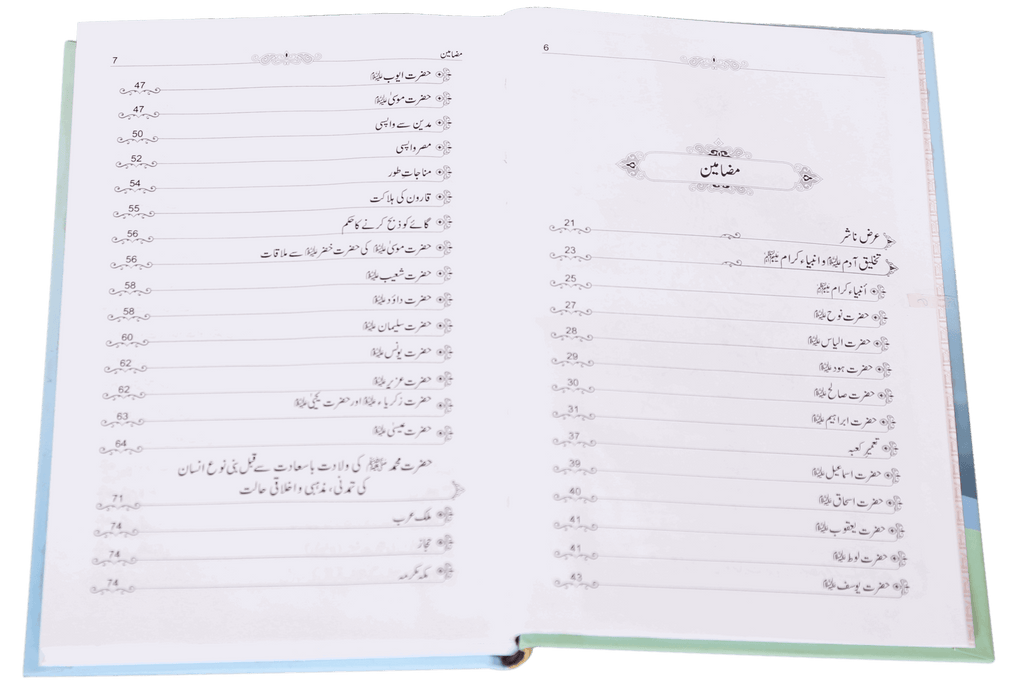 6
مضامین
عرض ناشر 21
تخلیق آدم علیہ السلام و انبیاء کرام علیہم السلام 23
أنبیاء کرام علیہم السلام 25
حضرت نوح علیہ السلام 27
حضرت الیاس علیہ السلام 28
حضرت ہود علیہ السلام 29
حضرت صالح علیہ السلام 30
حضرت ابراہیم علیہ السلام 31
تعمیر کعبہ 37
حضرت اسماعیل علیہ السلام 39
حضرت اسحاق علیہ السلام 40
حضرت یعقوب علیہ السلام 41
حضرت لوط علیہ السلام 41
حضرت یوسف علیہ السلام 43
مضامین 7
حضرت ایوب علیہ السلام 47
حضرت موسیٰ علیہ السلام 47
مدین سے واپسی 50
مصر واپسی 52
مناجات طور 54
قارون کی ہلاکت 55
گائے کو ذبح کرنے کا حکم 56
حضرت موسیٰ علیہ السلام کی حضرت خضر علیہ السلام سے ملاقات 56
حضرت شعیب علیہ السلام 58
حضرت داؤد علیہ السلام 58
حضرت سلیمان علیہ السلام 60
حضرت یونس علیہ السلام 62
حضرت عزیر علیہ السلام 62
حضرت زکریاء علیہ السلام اور حضرت یحییٰ علیہ السلام 63
حضرت عیسیٰ علیہ السلام 64
حضرت محمد ﷺ کی ولادت باسعادت سے قبل بنی نوع انسان
کی تمدنی، مذہبی و اخلاقی حالت 71
ملک عرب 74
حجاز 74
مکہ مکرمہ 74